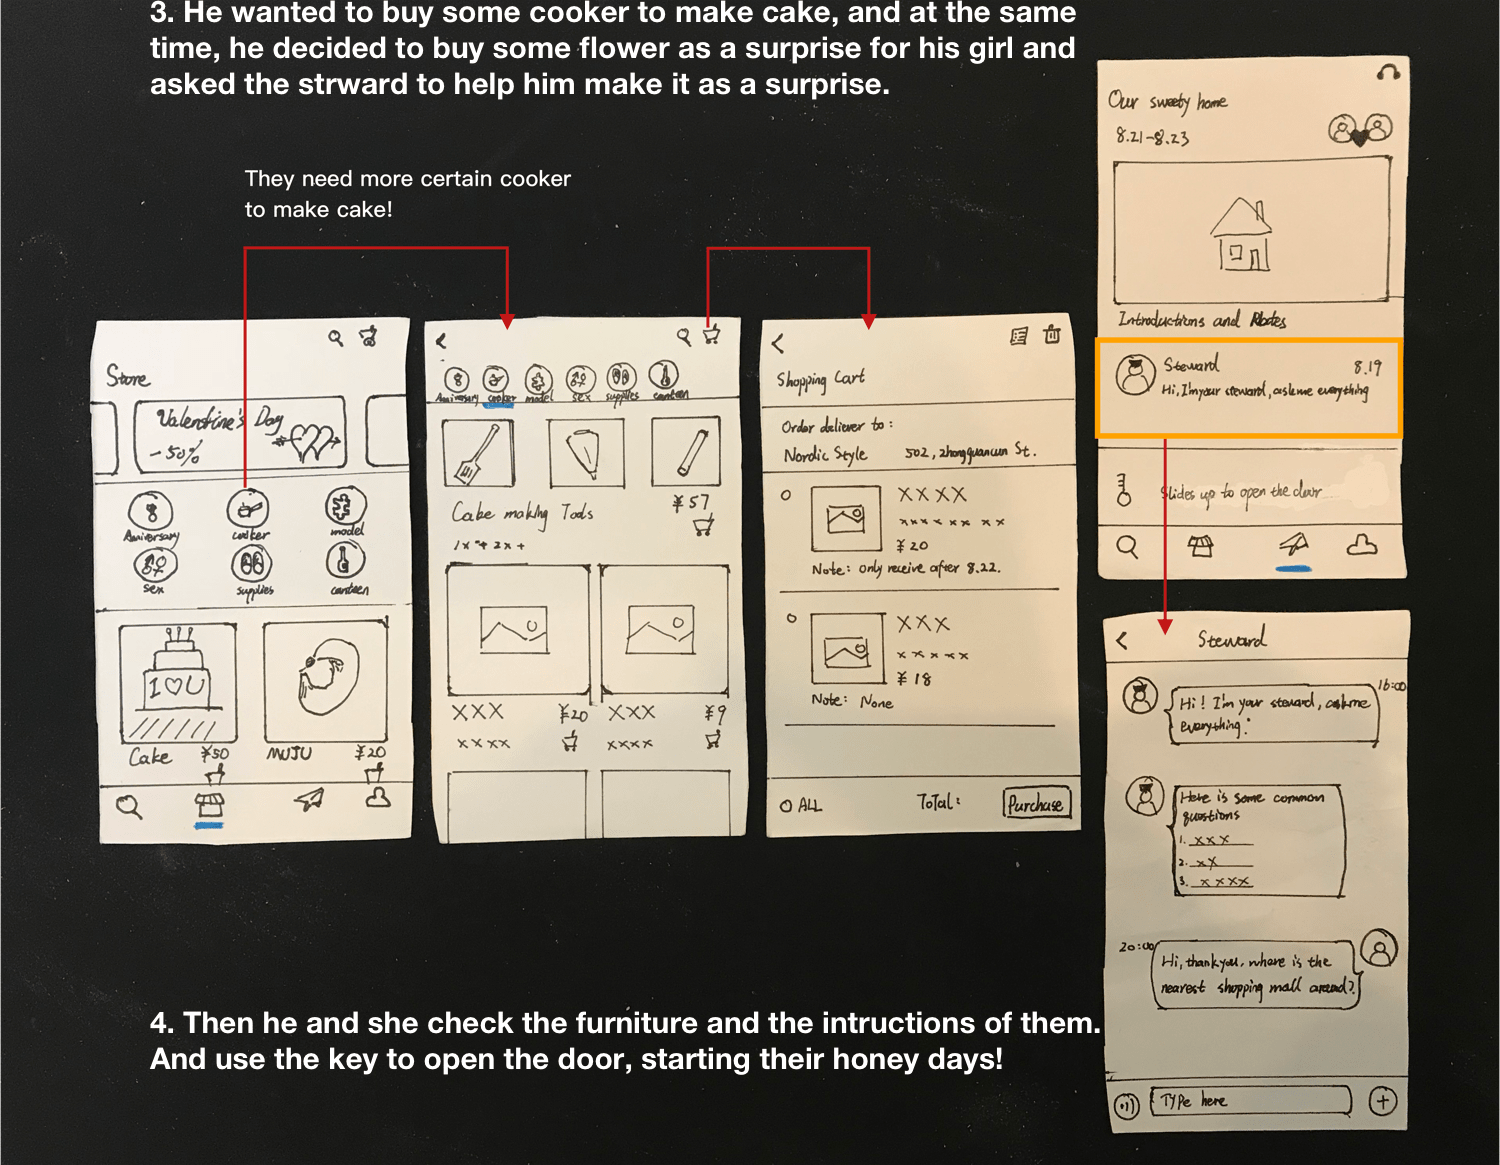 3. He wanted to buy some cooker to make cake, and at the same
time, he decided to buy some flower as a surprise for his girl and
asked the strward to help him make it as a surprise.
They need more certain cooker
to make cake!
Store
Valentine's Day
-50%
Anniversary cooker model
sex supplies canteen
I U
Cake ¥50 MUJU ¥20
Anniversary cooker model sex supplies canteen
Cake making Tools ¥57
1x 2x
XXX ¥20 XXX ¥9
xxxx xxxx
Shopping Cart
Order deliever to:
Nordic Style 502, zhongguancun St.
XXXX
xxxxx xx xx
¥20
Note: only receive after 8.22.
XXX
xxxxx
¥18
Note: None
ALL ToTal: Purchase
Our sweety home
8.21-8.23
Introductions and
Steward 8.19
Hi, I'm your steward, ask me everything
Slides up to open the door
Steward
16:00
Hi! I'm your steward, ask me
everything!
Here is some common
questions
1. xxx
2. xx
3. xxxx
20:00
Hi, thank you, where is the
nearest shopping mall around?
Type here
4. Then he and she check the furniture and the intructions of them.
And use the key to open the door, starting their honey days!